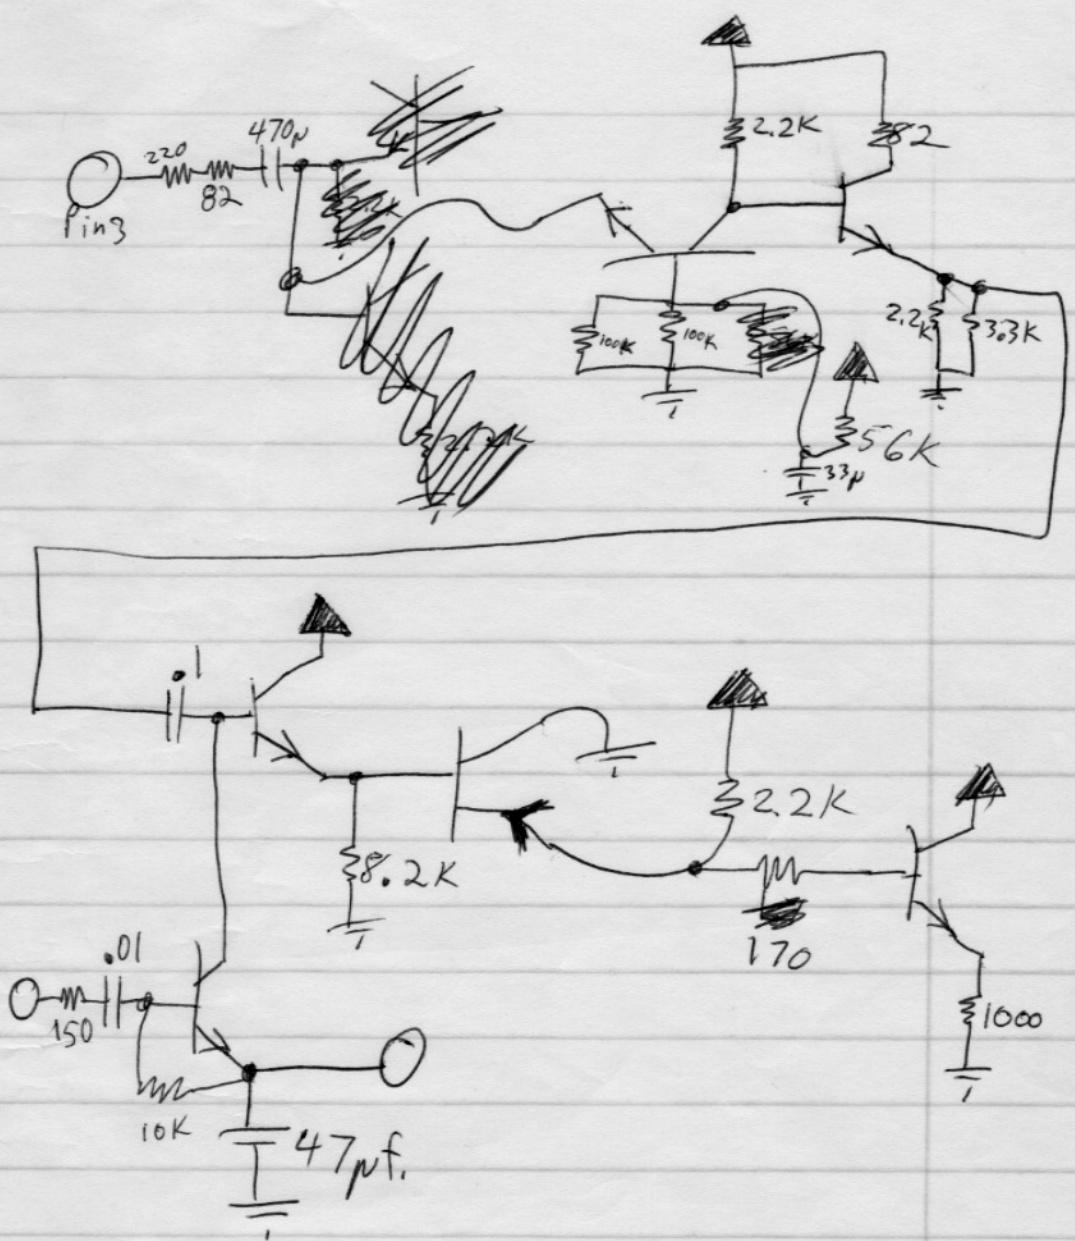 220
82
470µ
Pin3
2.2K
82
100K
100K
2.2K
3.3K
56K
33µ
.1
8.2K
2.2K
170
1000
.01
150
10K
47µf.